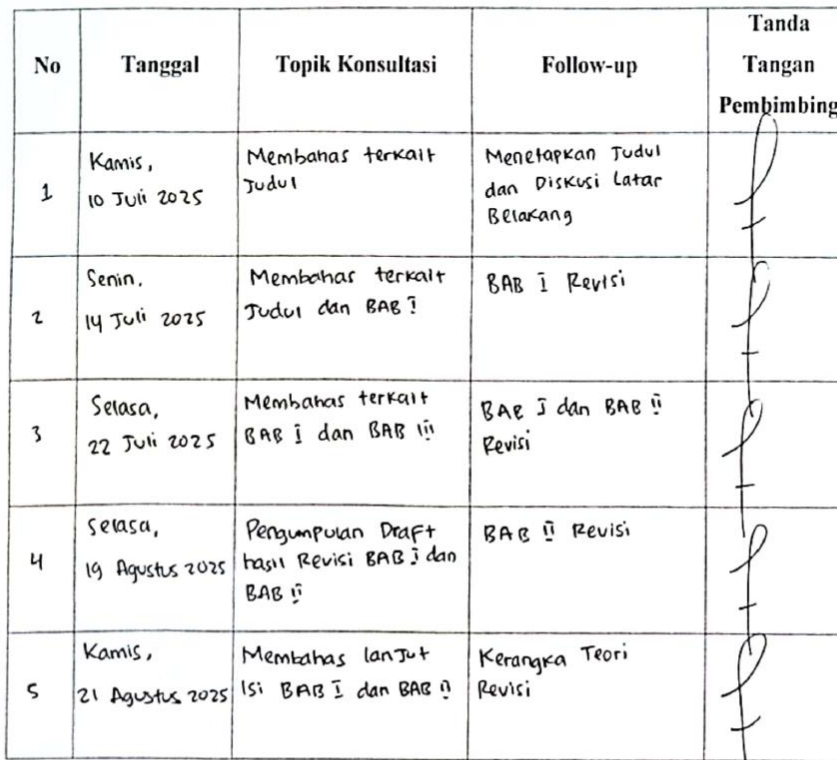 No
Tanggal
Topik Konsultasi
Follow-up
Tanda
Tangan
Pembimbing
1
Kamis,
10 Juli 2025
Membahas terkait
Judul
Menetapkan Judul
dan Diskusi Latar
Belakang
2
Senin,
14 Juli 2025
Membahas terkait
Judul dan BAB I
BAB I Revisi
3
Selasa,
22 Juli 2025
Membahas terkait
BAB I dan BAB III
BAB I dan BAB II
Revisi
4
Selasa,
19 Agustus 2025
Pengumpulan Draft
hasil Revisi BAB I dan
BAB II
BAB II Revisi
5
Kamis,
21 Agustus 2025
Membahas lanjut
Isi BAB I dan BAB II
Kerangka Teori
Revisi